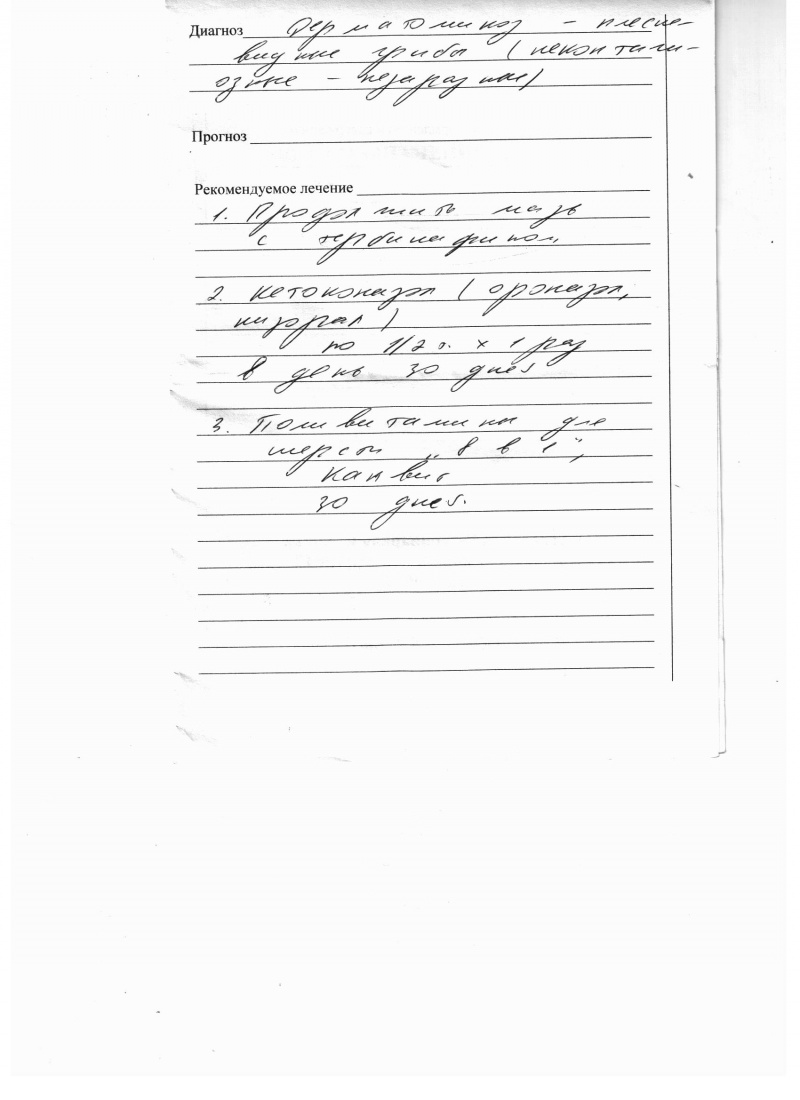 Диагноз Дерматомикоз – плесне-
видные грибы (неконтаги-
озные – незаразные)
Прогноз
Рекомендуемое лечение
1. Продолжить мазь
с тербинафином.
2. Кетоконазол (ороназол,
низорал)
по 1/2 т. х 1 раз
в день 30 дней
3. Поливитамины для
шерсти „8 в 1",
Канвит
30 дней.